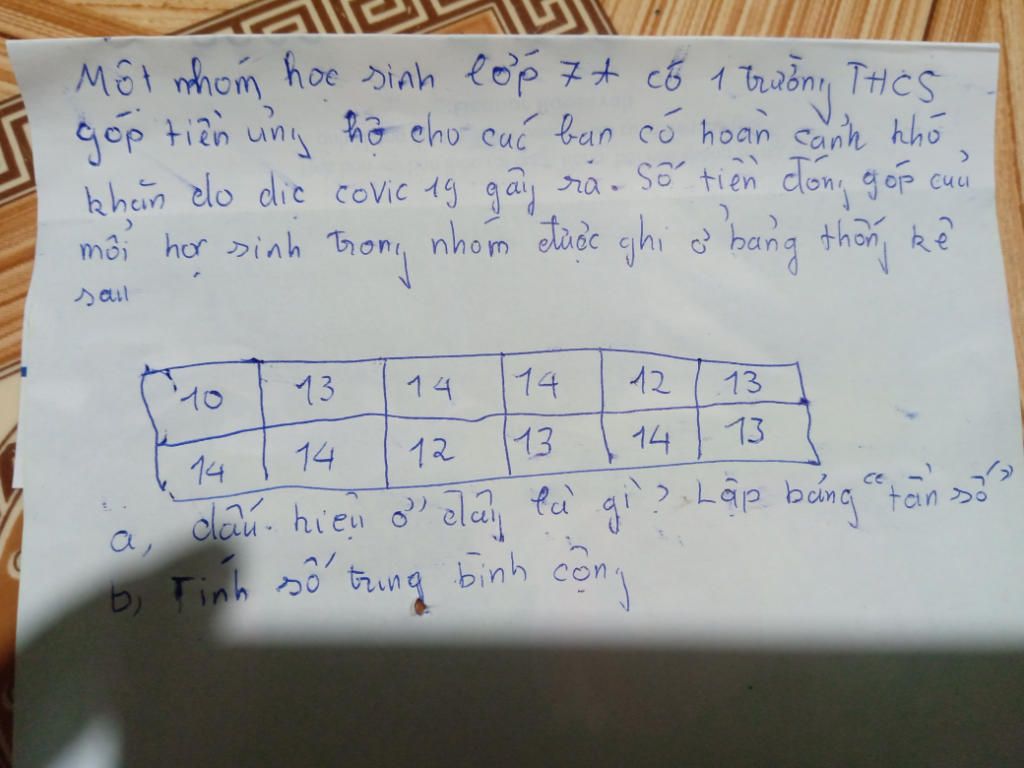 Một nhóm học sinh lớp 7A cố 1 trường THCS
góp tiền ủng hộ cho các bạn có hoàn cảnh khó
khăn do dic covic 19 gây ra. Số tiền đóng góp của
mỗi học sinh trong nhóm được ghi ở bảng thống kê
sau
10 13 14 14 12 13
14 14 12 13 14 13
a, dấu hiệu ở đây là gì? Lập bảng "tần số"
b, Tính số trung bình cộng